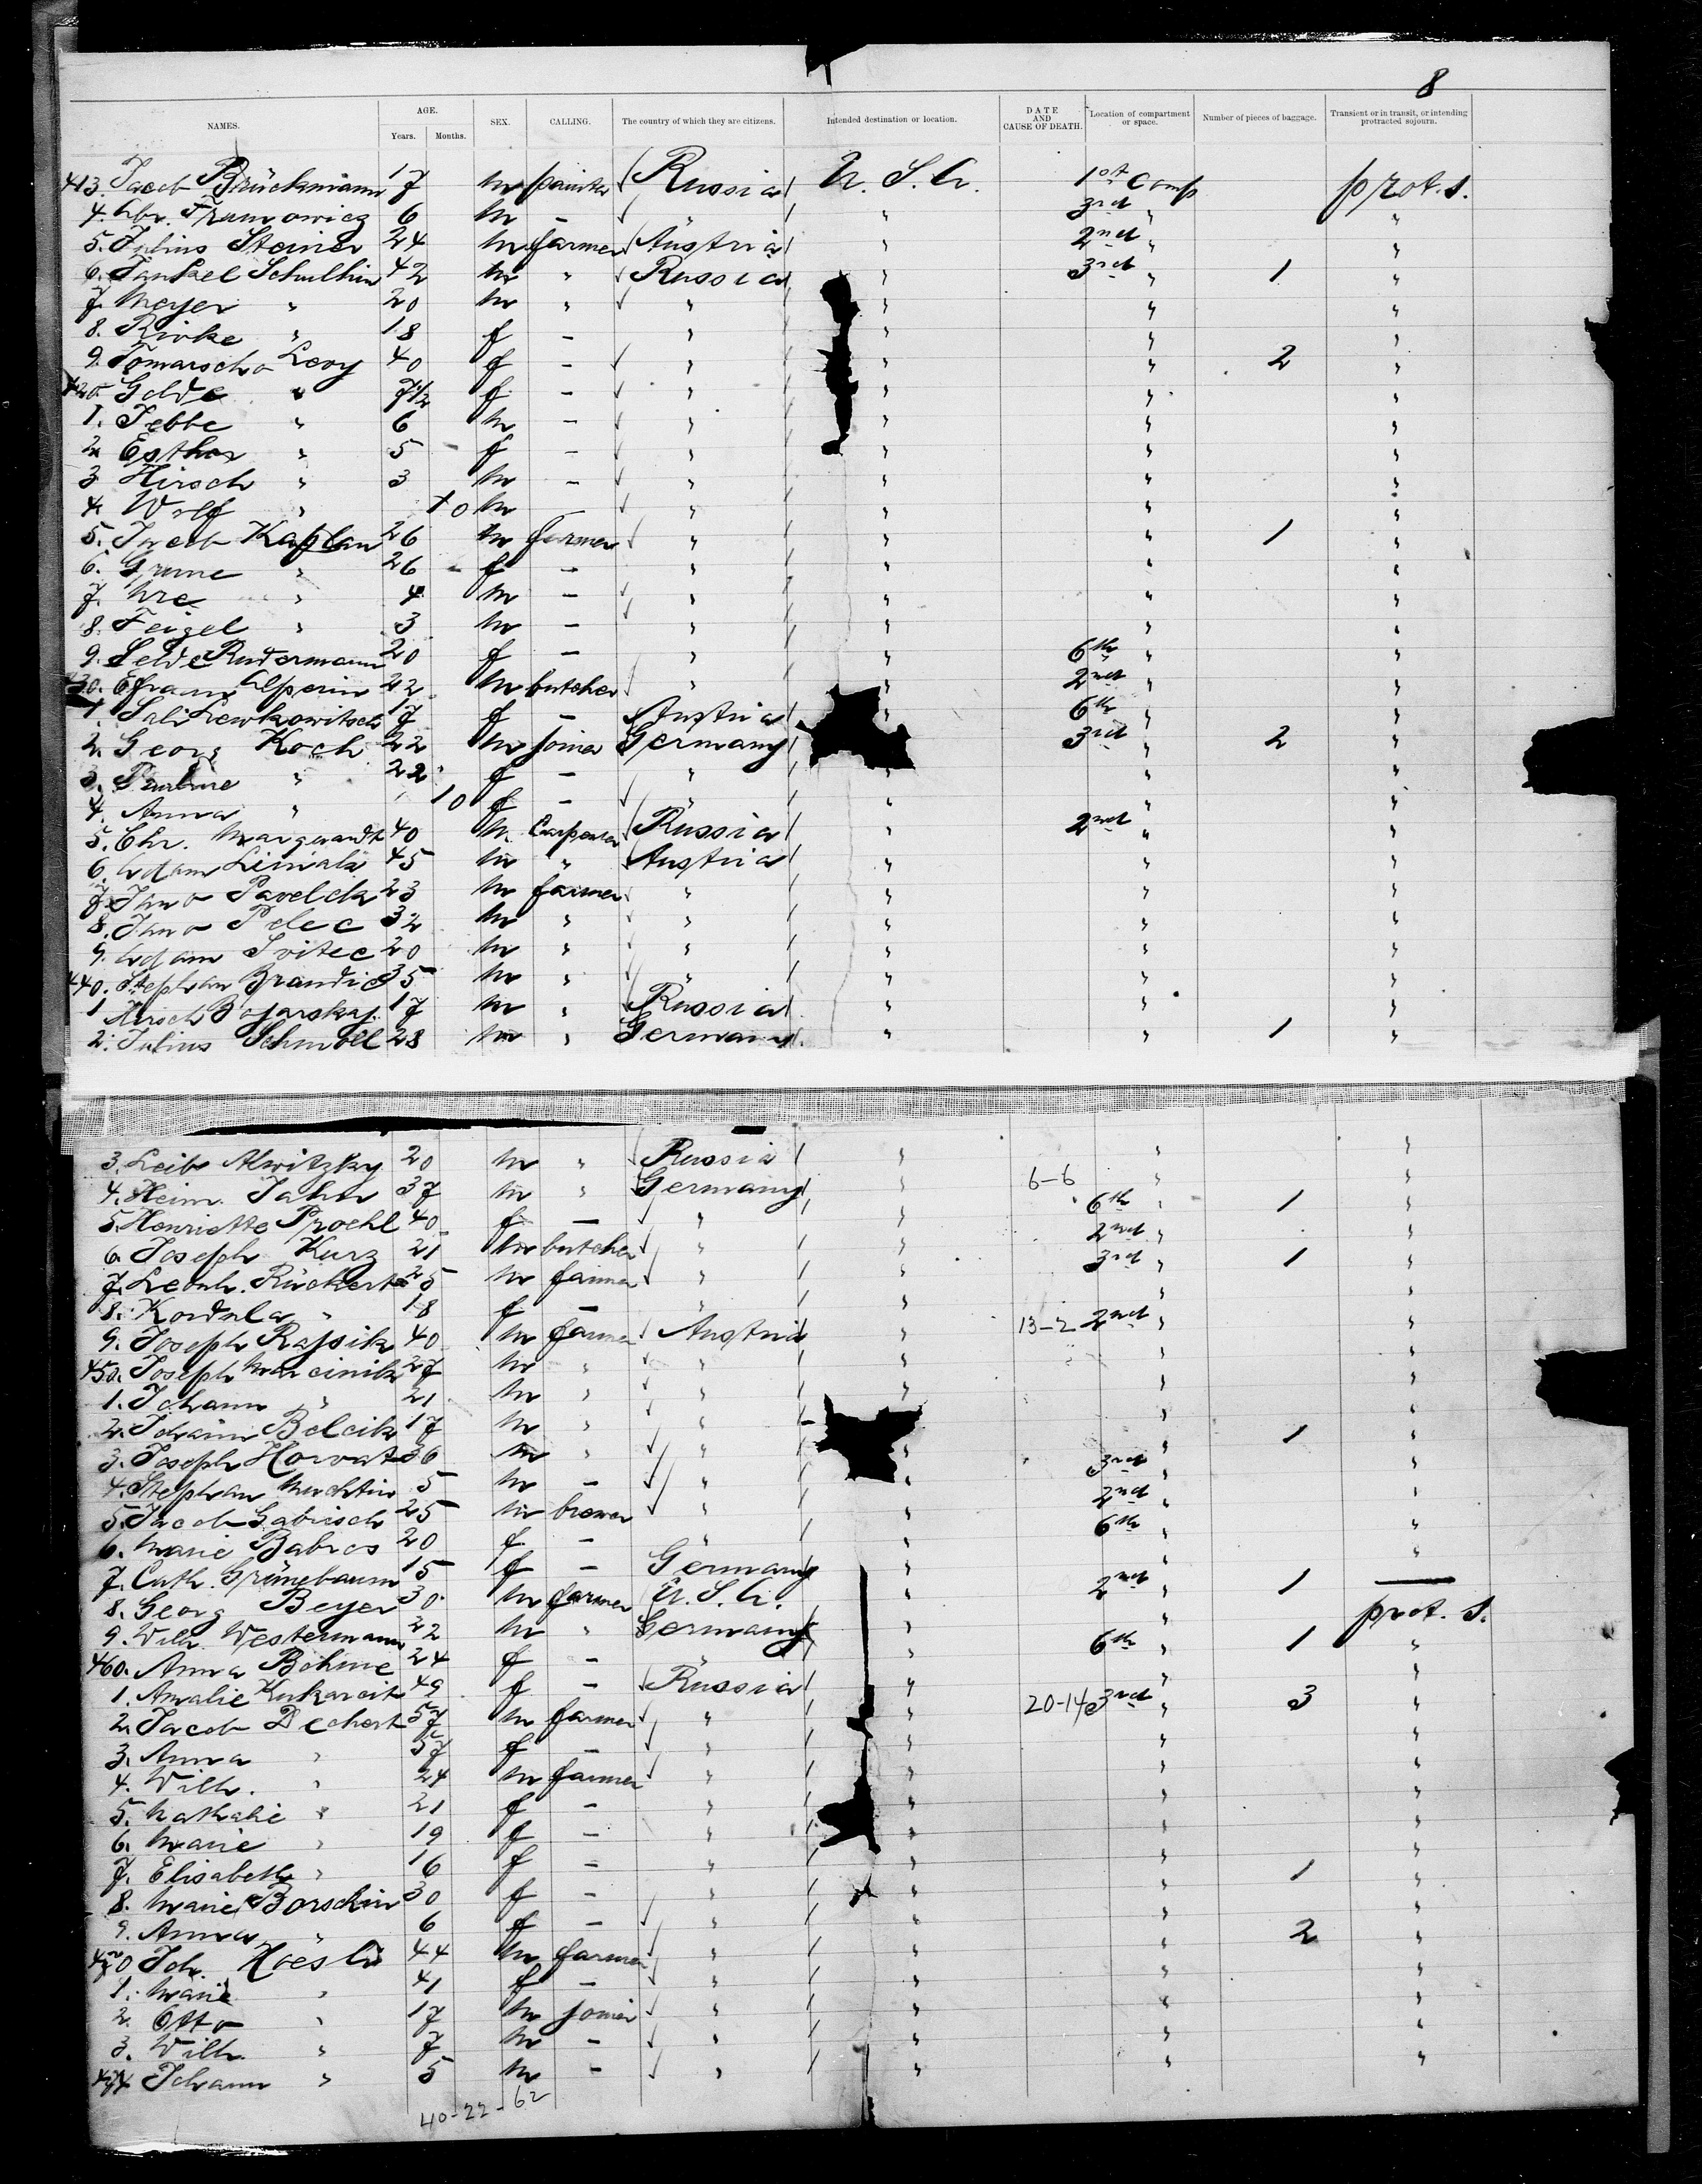 8
NAMES. AGE. Years. Months. SEX. CALLING. The country of which they are citizens. Intended destination or location. DATE AND CAUSE OF DEATH. Location of compartment or space. Number of pieces of baggage. Transient or in transit, or intending protracted sojourn.
413. Jacob Brückmann 17 m painter Russia U.S.A. 1st Comp prot. s.
4. Abr. 6 m – " 3rd " "
5. Julius Steiner 24 m farmer Austria " 2nd " "
6. Jankel Schulkin 42 m " Russia " 3rd " 1 "
7. Meyer " 20 m " " " " "
8. Rivke " 18 f – " " " "
9. Tomascha Levy 40 f – " " " 2 "
420. Golde " 7½ f – " " " "
1. Jebbe " 6 m – " " " "
2. Esther " 5 f – " " " "
3. Hirsch " 3 m – " " " "
4. Wolf " 10 m – " " " "
5. Jacob Kaplan 26 m farmer " " " 1 "
6. Grune " 26 f – " " " "
7. " 4 m – " " " "
8. Feigel " 3 m – " " " "
9. Selde Rudermann 20 f – " " 6th " "
430. Efraim Alperin 22 m butcher " " 2nd " "
1. Sali Lewkowitsch 17 f – Austria " 6th " "
2. Georg Koch 22 m joiner Germany 3rd " 2 "
3. Pauline " 22 f – " " " "
4. Anna " 10 f – " " " "
5. Chr. Marquardt 40 m Carpenter Russia " 2nd " "
6. Adam 45 m " Austria " " "
7. Pavelek 23 m farmer " " " "
8. Pelec 32 m " " " " "
9. Adam Svitec 20 m " " " " "
440. Stephan Brandic 35 m " " " " "
1 Hirsch Bojarskaj 17 m " Russia " " "
2. Julius Schmoll 28 m " Germany " " 1 "
3. Leib Alwitzky 20 m " Russia " " "
4. Heinr. Jahn 37 m " Germany " 6-6 " "
5. Henriette Proehl 40 f – " " 6th " 1 "
6. Joseph Kurz 21 m butcher " " 2nd " "
7. Leonh. Rückert 25 m farmer " " 3rd " 1 "
8. Kordula " 18 f – " " " "
9. Joseph Rajsik 40 m farmer Austria " 13-2 2nd " "
450. Joseph Marcinik 27 m " " " " "
1. Johann " 21 m " " " " "
2. Johann Belcik 17 m " " " "
3. Joseph Horvat 36 m " " " " 1 "
4. Stephan 5 m – " " 3rd " "
5. Jacob Gabrisch 25 m brewer " " 2nd " "
6. Marie Babics 20 f – " " 6th " "
7. Cath. Grünebaum 15 f – Germany " " "
8. Georg Beyer 30 m farmer U.S.A. " 2nd " 1 —
9. Wilh. Westermann 22 m " Germany " " prot. s.
460. Anna Böhme 24 f – " " 6th " 1 "
1. Amalie Kukareit 49 f – Russia " " "
2. Jacob Dechert 57 m farmer " " 20-14 3rd " 3 "
3. Anna " 57 f – " " " "
4. Wilh. " 24 m farmer " " " "
5. Nathalie " 21 f – " " " "
6. Marie " 19 f – " " " "
7. Elisabeth " 16 f – " " " "
8. Marie Borschin 30 f – " " " 1 "
9. Anna " 6 f – " " " "
470 Joh. Koesler 44 m farmer " " " 2 "
1. Marie " 41 f – " " " "
2. Otto " 17 m joiner " " " "
3. Wilh. " 7 m – " " " "
474 Johann " 5 m – " " " "
40-22-62